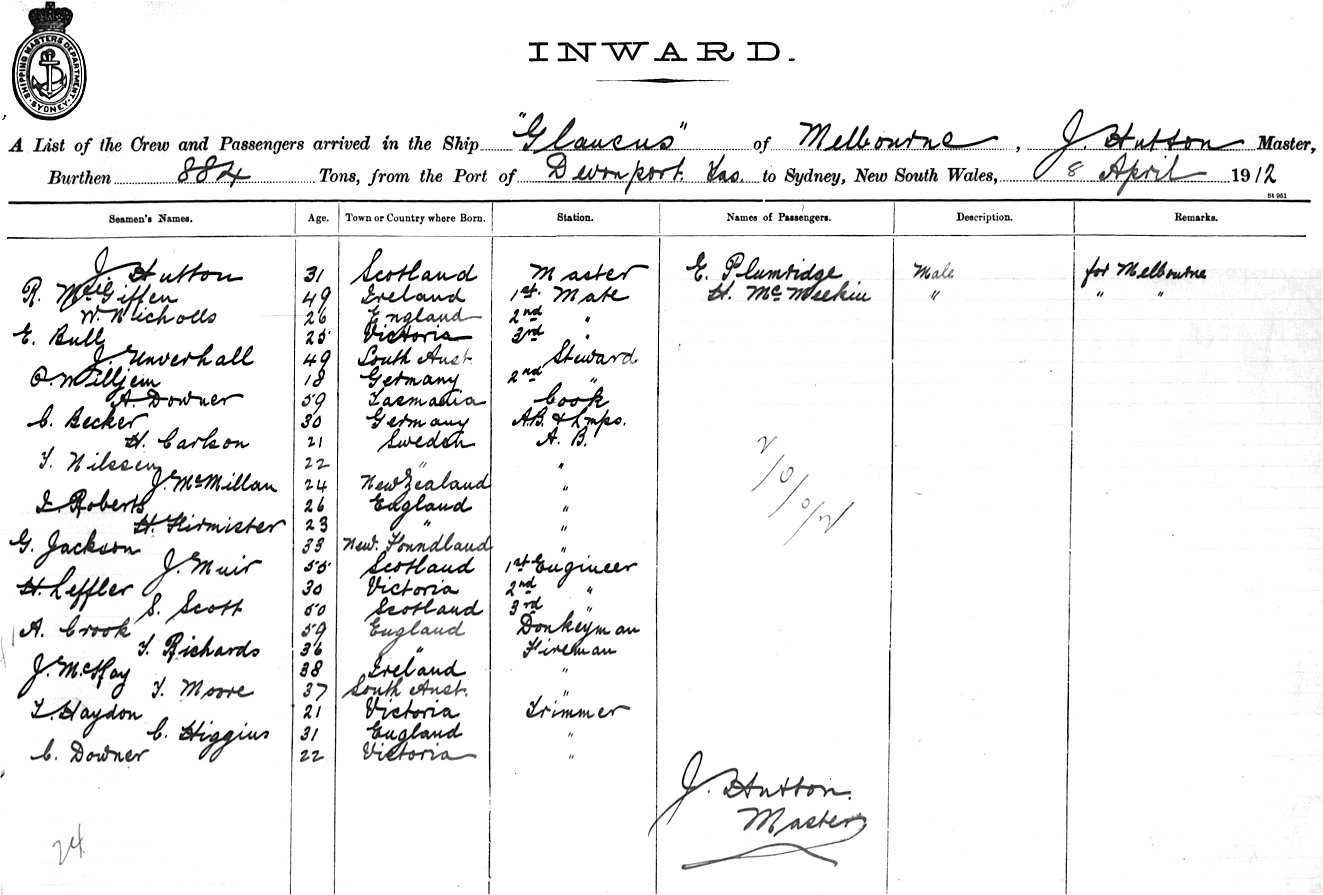 SHIPPING MASTERS DEPARTMENT. SYDNEY.
INWARD.
A List of the Crew and Passengers arrived in the Ship "Glaucus" of Melbourne, J. Hutton Master,
Burthen 884 Tons, from the Port of Devonport. Tas. to Sydney, New South Wales, 8 April 1912
St 951
Seamen's Names. Age. Town or Country where Born. Station. Names of Passengers. Description. Remarks.
J. Hutton 31 Scotland Master E. Plumridge Male for Melbourne
R. McGiffen 49 Ireland 1st Mate H. McMeekin " " "
W. Nicholls 26 England 2nd "
E. Bull 25 Victoria 3rd "
J. Unverhall 49 South Aust. Steward
O. Willjem 18 Germany 2nd "
A. Downer 59 Tasmania Cook
C. Becker 30 Germany A.B. & Lmps.
H. Carlson 21 Sweden A. B.
T. Nilssen 22 " "
J. McMillan 24 New Zealand "
Roberts 26 England "
H. Firmister 23 " "
G. Jackson 33 New. Foundland "
J. Muir 55 Scotland 1st Engineer
H. Leffler 30 Victoria 2nd "
S. Scott 50 Scotland 3rd "
A. Crook 59 England Donkeyman
T. Richards 36 " Fireman
J. McKay 38 Ireland "
T. Moore 37 South Aust. "
Haydon 21 Victoria Trimmer
C. Higgins 31 England "
C. Downer 22 Victoria "
J. Hutton.
Master
24